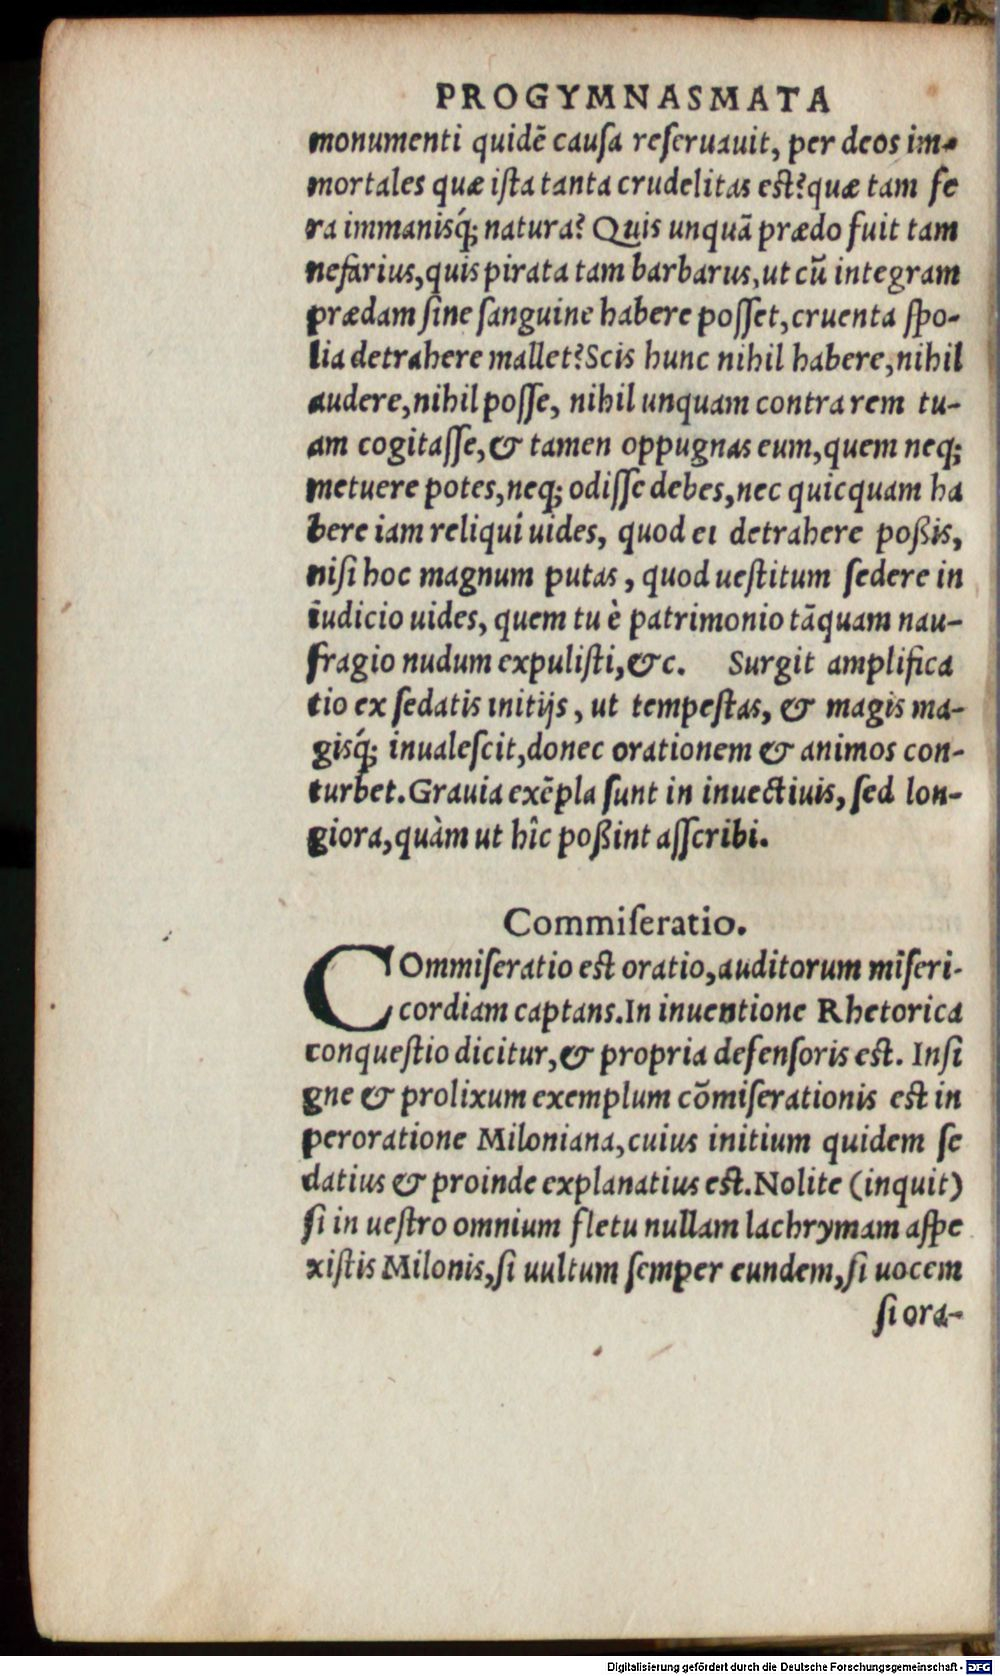 PROGYMNASMATA
monumenti quidē cauſa reſeruauit, per deos im-
mortales quæ iſta tanta crudelitas est? quæ tam fe
ra immanisq́; natura? Quis unquā prædo fuit tam
nefarius, quis pirata tam barbarus, ut cū integram
prædam ſine ſanguine habere poſſet, cruenta ſpo-
lia detrahere mallet? Scis hunc nihil habere, nihil
audere, nihil poſſe, nihil unquam contra rem tu-
am cogitaſſe, & tamen oppugnas eum, quem neq;
metuere potes, neq; odiſſe debes, nec quicquam ha
bere iam reliqui uides, quod ei detrahere poßis,
niſi hoc magnum putas, quod ueſtitum ſedere in
iudicio uides, quem tu è patrimonio tāquam nau-
fragio nudum expuliſti, &c. Surgit amplifica
tio ex ſedatis initijs, ut tempeſtas, & magis ma-
gisq́; inualeſcit, donec orationem & animos con-
turbet. Grauia exēpla ſunt in inuectiuis, ſed lon-
giora, quàm ut hîc poßint aſſcribi.
Commiſeratio.
COmmiſeratio est oratio, auditorum miſeri-
cordiam captans. In inuentione Rhetorica
conqueſtio dicitur, & propria defenſoris est. Inſi
gne & prolixum exemplum cōmiſerationis est in
peroratione Miloniana, cuius initium quidem ſe
datius & proinde explanatius est. Nolite (inquit)
ſi in ueſtro omnium fletu nullam lachrymam aſpe
xiſtis Milonis, ſi uultum ſemper eundem, ſi uocem
ſi ora-
Digitalisierung gefördert durch die Deutsche Forschungsgemeinschaft - DFG